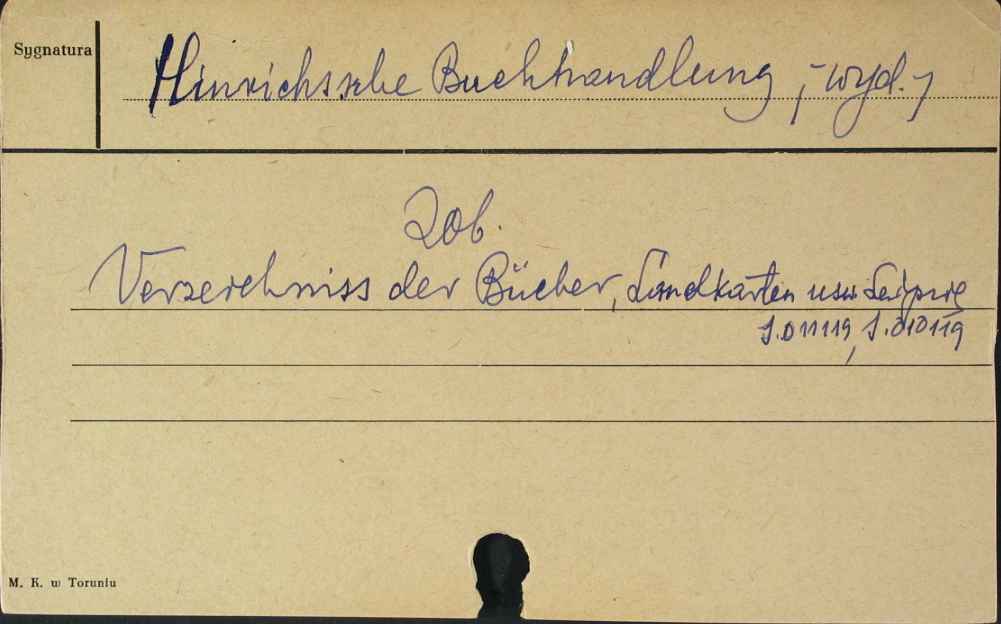 Sygnatura
Hinrichssche Buchhandlung, -wyd.-
Zob.
Verzeichniss der Bücher, Landkarten usw Leipzig
S.011119, S.010119
M. K. w Toruniu